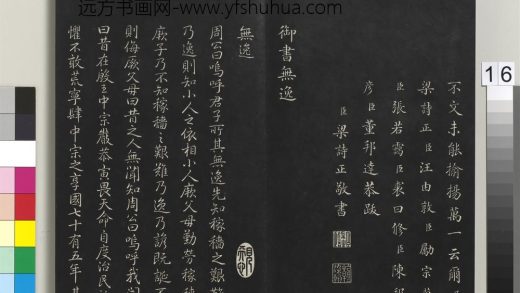 远方书画网-www.yfshuhua.com
16
不文未能揄揚萬一云爾
梁詩正臣汪由敦臣勵宗
臣張若靄臣裘曰修臣陳
彦臣董邦達恭跋
臣梁詩正敬書
御書無逸
無逸
周公曰嗚呼君子所其無逸先知稼穡之艱
乃逸則知小人之依相小人厥父母勤勞稼
厥子乃不知稼穡之艱難乃逸乃諺既誕
則侮厥父母曰昔之人無聞知周公曰嗚呼我
曰昔在殷王中宗嚴恭寅畏天命自度治民
懼不敢荒寧肆中宗之享國七十有五年其